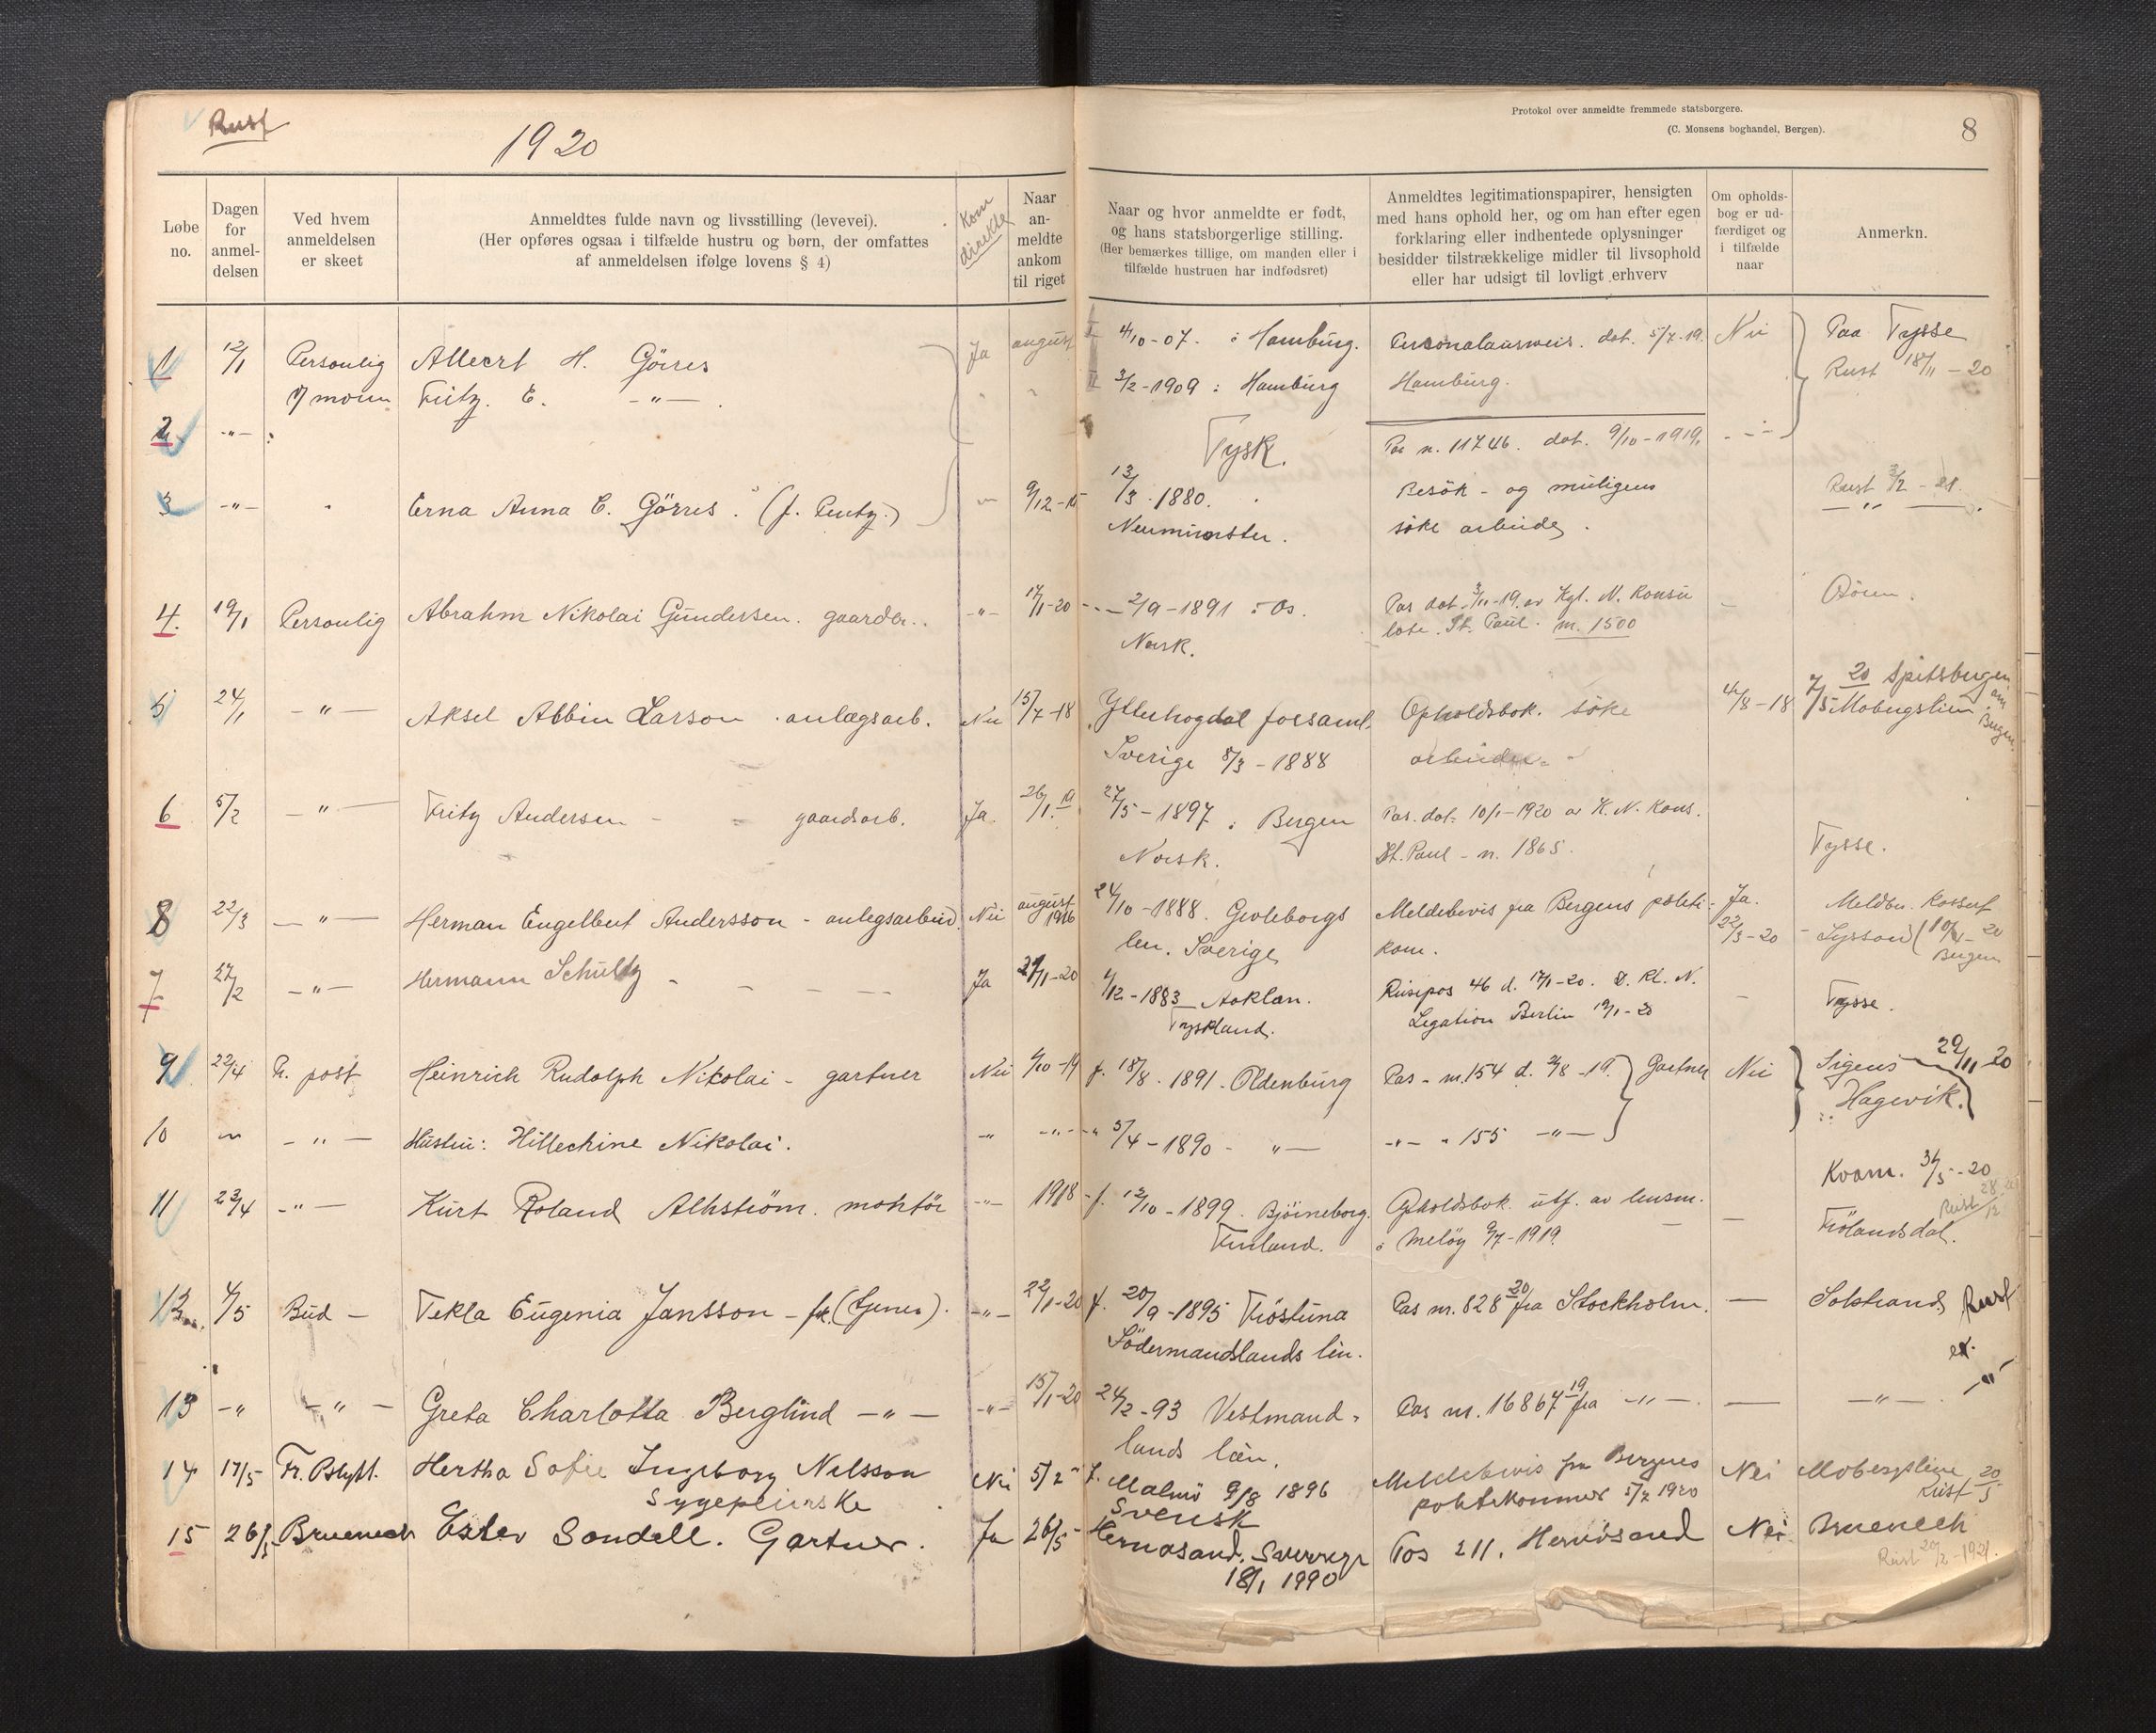 Rust
1920
Protokol over anmeldte fremmede statsborgere.
(C. Monsens boghandel, Bergen).
8
Løbe no.
Dagen for anmel-delsen
Ved hvem anmeldelsen er skeet
Anmeldtes fulde navn og livsstilling (levevei).
(Her opføres ogsaa i tilfælde hustru og børn, der omfattes
af anmeldelsen ifølge lovens § 4)
Kom direkte
Naar an-meldte ankom til riget
Naar og hvor anmeldte er født,
og hans statsborgerlige stilling.
(Her bemærkes tillige, om manden eller i
tilfælde hustruen har indfødsret)
Anmeldtes legitimationspapirer, hensigten
med hans ophold her, og om han efter egen
forklaring eller indhentede oplysninger
besidder tilstrækkelige midler til livsophold
eller har udsigt til lovligt erhverv
Om opholds-bog er ud-færdiget og i tilfælde naar
Anmerkn.
1 12/1 Personlig Albert H. Görres Ja august 4/10-07. i Hamburg. Personalausweis. dat. 5/7-19. Nei Paa Tysse
Fritz. E. -"- 3/2-1909 i Hamburg Hamburg. Rust 18/11-20
2 -"- Tysk. Pas n. 11746. dat. 9/10-1919.
3 -"- Erna Anna C. Görres. (f. Pentz.) 9/12-15 13/3.1880. Besök - og muligens Rust 3/2-21.
Neumünster. söke arbeide.
4. 19/1 Personlig Abrahm Nikolai Gundersen. gaardbr. -"- 17/1-20 2/9-1891 i Os. Pas dat. 3/11-19. av Kgl. N. Konsu
Norsk. late. St. Paul. nr. 1500
5 24/1 -"- Aksel Albin Larson. anlægsarb. Nei 15/7-18 Ytterhogdal forsaml. Opholdsbok. söke 4/8-18 7/5 20 Spitsbergen
Sverige 8/3-1888 arbeide. Mobergslien
6 5/2 -"- Fritz Andersen - gaardsarb. Ja. 26/1.19 27/5-1897 i Bergen Pas. dat. 10/1-1920 av K. N. Kons.
Norsk. St. Paul - n. 1865. Tysse.
8 22/3 -"- Herman Engelbert Andersson - anlegsarbeid. Nei august 1916 24/10-1888. Gevleborgs Meldebevis fra Bergens politi- Ja. Meldbv.
len. Sverige kom. 22/3-20 Bergen
7 27/2 -"- Hermann Schultz Ja 27/1-20 4/12-1883 Reisepas 46 d. 17/1-20. Kl. N. Tysse.
Tyskland. Legation Berlin 19/1-20
9 22/4 Pr. post Heinrich Rudolph Nikolai - gartner Nei 4/10-19 f. 18/8.1891. Oldenburg Pas - nr. 154 d. 2/8-19. Gartner Nei 29/11 20
Hagevik.
10 -"- Hustru: Hillechine Nikolai. -"- -"- 5/4-1890 - "- -"- " 155 -"-
11 23/4 -"- Kurt Roland Alhström. montör -"- 1918 - f. 12/10-1899. Björneborg. Opholdsbok. utf. av lensm. Kvam. 31/5-20
Finland. i Melöy 9/7-1919. Frölandsdal.
12 4/5 Bud - Tekla Eugenia Jansson - frk. -"- 22/1-20 f. 20/9-1895 Tröstuna Pas nr. 828 20 fra Stockholm. - Solstrand, Rust
Södermandslands len.
13 -"- -"- Greta Charlotta Berglind -"- -"- 15/1-20 24/2-93 Vestmand- Pas nr. 16867 19 fra -"-. - -"-
lands län.
14 17/5 Hertha Sofie Ingeborg Nilsson Nei 5/2 f. Malmö 9/8 1896 Meldebevis fra Bergens Nei Mobergslien 20/5
Sygepleierske Svensk politikammer 5/2 1920 Rust
15 26/5 Bruenech Ester Sondell. Gartner. Ja 26/5 Hernösand. Sverrige Pas 211. Hernösand Nei Bruenech
18/1 1990 Rust 20/2-1921.